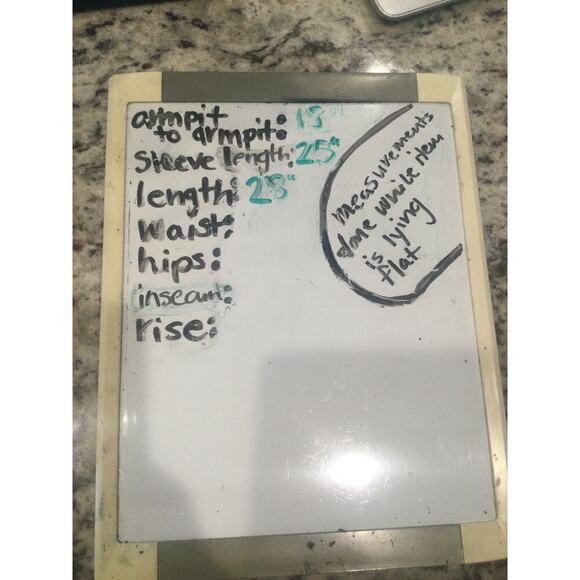 armpit
to armpit: 18
sleeve length: 25"
length: 28"
waist:
hips:
inseam:
rise:
measurements
done while item
is lying
flat